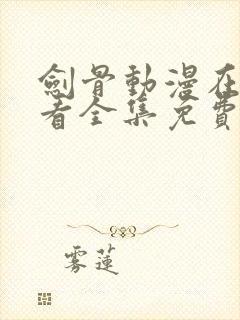 劍骨動漫在
看全集免費
雾蓮